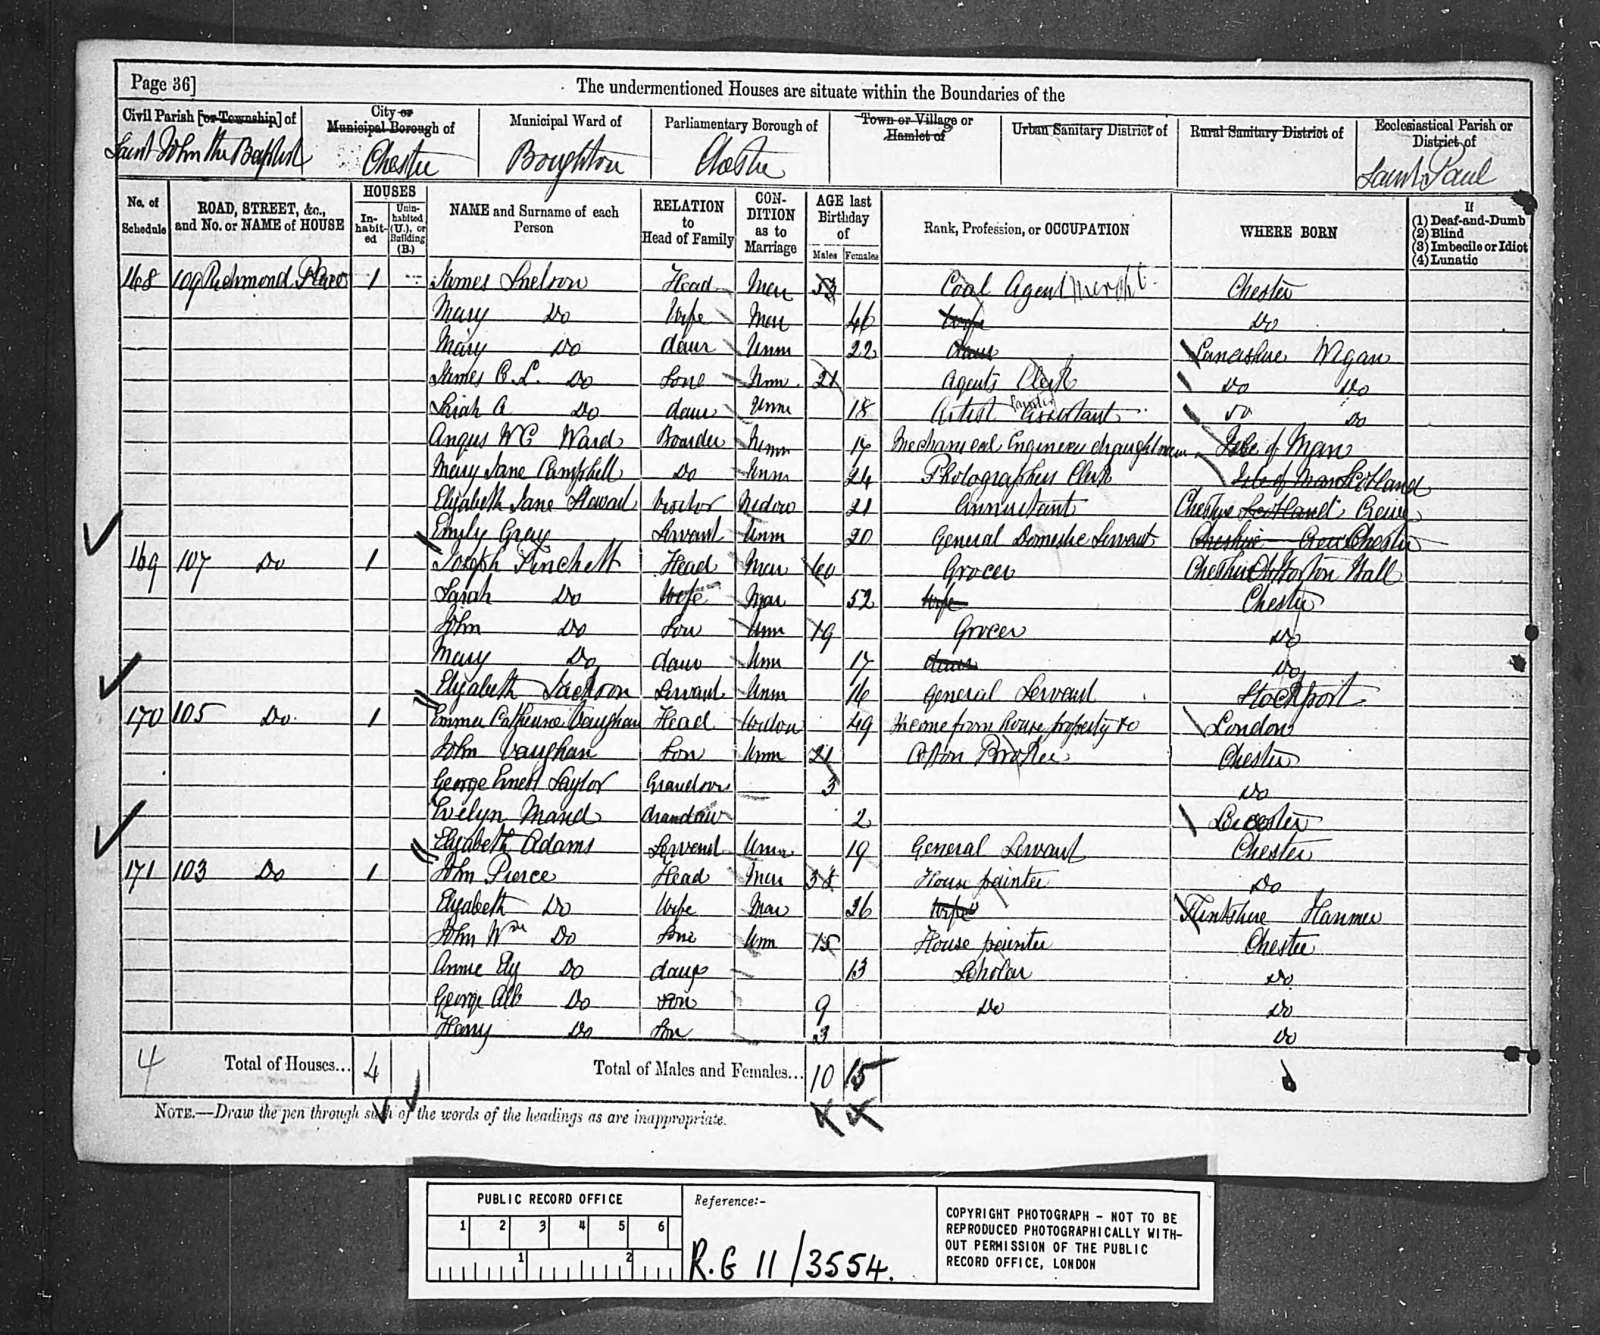 Page 36]
The undermentioned Houses are situate within the Boundaries of the
Civil Parish [or Township] of
City or Municipal Borough of
Municipal Ward of
Parliamentary Borough of
Town or Village or Hamlet of
Urban Sanitary District of
Rural Sanitary District of
Ecclesiastical Parish or District of
Saint John the Baptist Chester Boughton Chester Saint Paul
No. of Schedule
ROAD, STREET, &c., and No. or NAME of HOUSE
HOUSES
In-habit-ed
Unin-habited (U.), or Building (B.)
NAME and Surname of each Person
RELATION to Head of Family
CON-DITION as to Marriage
AGE last Birthday of
Males Females
Rank, Profession, or OCCUPATION
WHERE BORN
If
(1) Deaf-and-Dumb
(2) Blind
(3) Imbecile or Idiot
(4) Lunatic
168 109 Richmond Place 1 James Snelson Head Mar 53 Coal Agent Chester
Mary Do Wife Mar 46 Wife Do
Mary Do daur Unm 22 daur Lancashire Wigan
James C. L. Do Sone Unm 21 Agents Clerk Do Do
Do daur Unm 18 Artist Assistant Do Do
Angus Wc Ward Boarder Unm 17 Mechanical Engineer draughtsman Isle of Man
Mary Jane Campbell Do Unm 24 Photographers Clerk Isle of Man Scotland
Elizabeth Jane Stewart Visitor Widow 21 Annuitant Cheshire Scotland Crewe
Emily Gray Servant Unm 20 General Domestic Servant Cheshire Crewe Chester
169 107 Do 1 Joseph Finchett Head Mar 60 Grocer Cheshire Hall
Sarah Do Wife Mar 52 Wife Chester
John Do Son Unm 19 Grocer Do
Mary Do daur Unm 17 daur Do
Elizabeth Jackson Servant Unm 16 General Servant Stockport
170 105 Do 1 Emma Catherine Vaughan Head Widow 49 Income from house property &c London
John Vaughan Son Unm 21 Cotton Broker Chester
George Ernest Taylor Grandson 3 Do
Evelyn Maud Grandaur 2 Leicester
Elizabeth Adams Servant Unm 19 General Servant Chester
171 103 Do 1 John Pierce Head Mar 38 House painter Do
Elizabeth Do Wife Mar 26 Wife Flintshire Hanmer
John Wm Do Sone Unm 15 House painter Chester
Annie Ely Do daug 13 Scholar Do
George Alb Do son 9 Do Do
Harry Do Son 3 Do
4 Total of Houses... 4 Total of Males and Females... 10 15
NOTE.—Draw the pen through such of the words of the headings as are inappropriate.
PUBLIC RECORD OFFICE
1 2 3 4 5 6
1 2
Reference:-
R.G 11/3554.
COPYRIGHT PHOTOGRAPH - NOT TO BE
REPRODUCED PHOTOGRAPHICALLY WITH-
OUT PERMISSION OF THE PUBLIC
RECORD OFFICE, LONDON